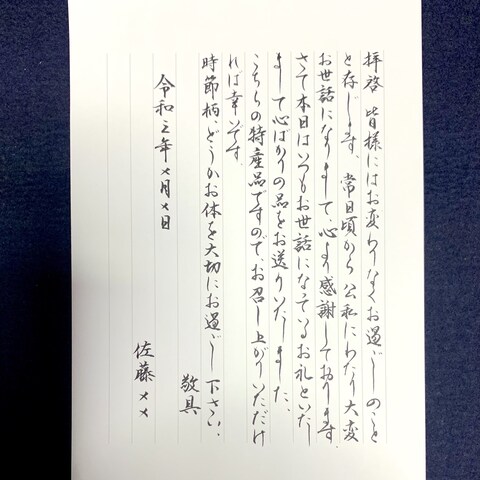 拝啓 皆様にはお変わりなくお過ごしのこと
と存じます。常日頃から公私にわたり大変
お世話になりまして、心より感謝しております。
さて本日はいつもお世話になっているお礼といたし
まして心ばかりの品をお送りいたしました。
こちらの特産品ですので、お召し上がりいただけ
れば幸いです。
時節柄、どうかお体を大切にお過ごし下さい。
敬具
令和三年×月×日
佐藤××